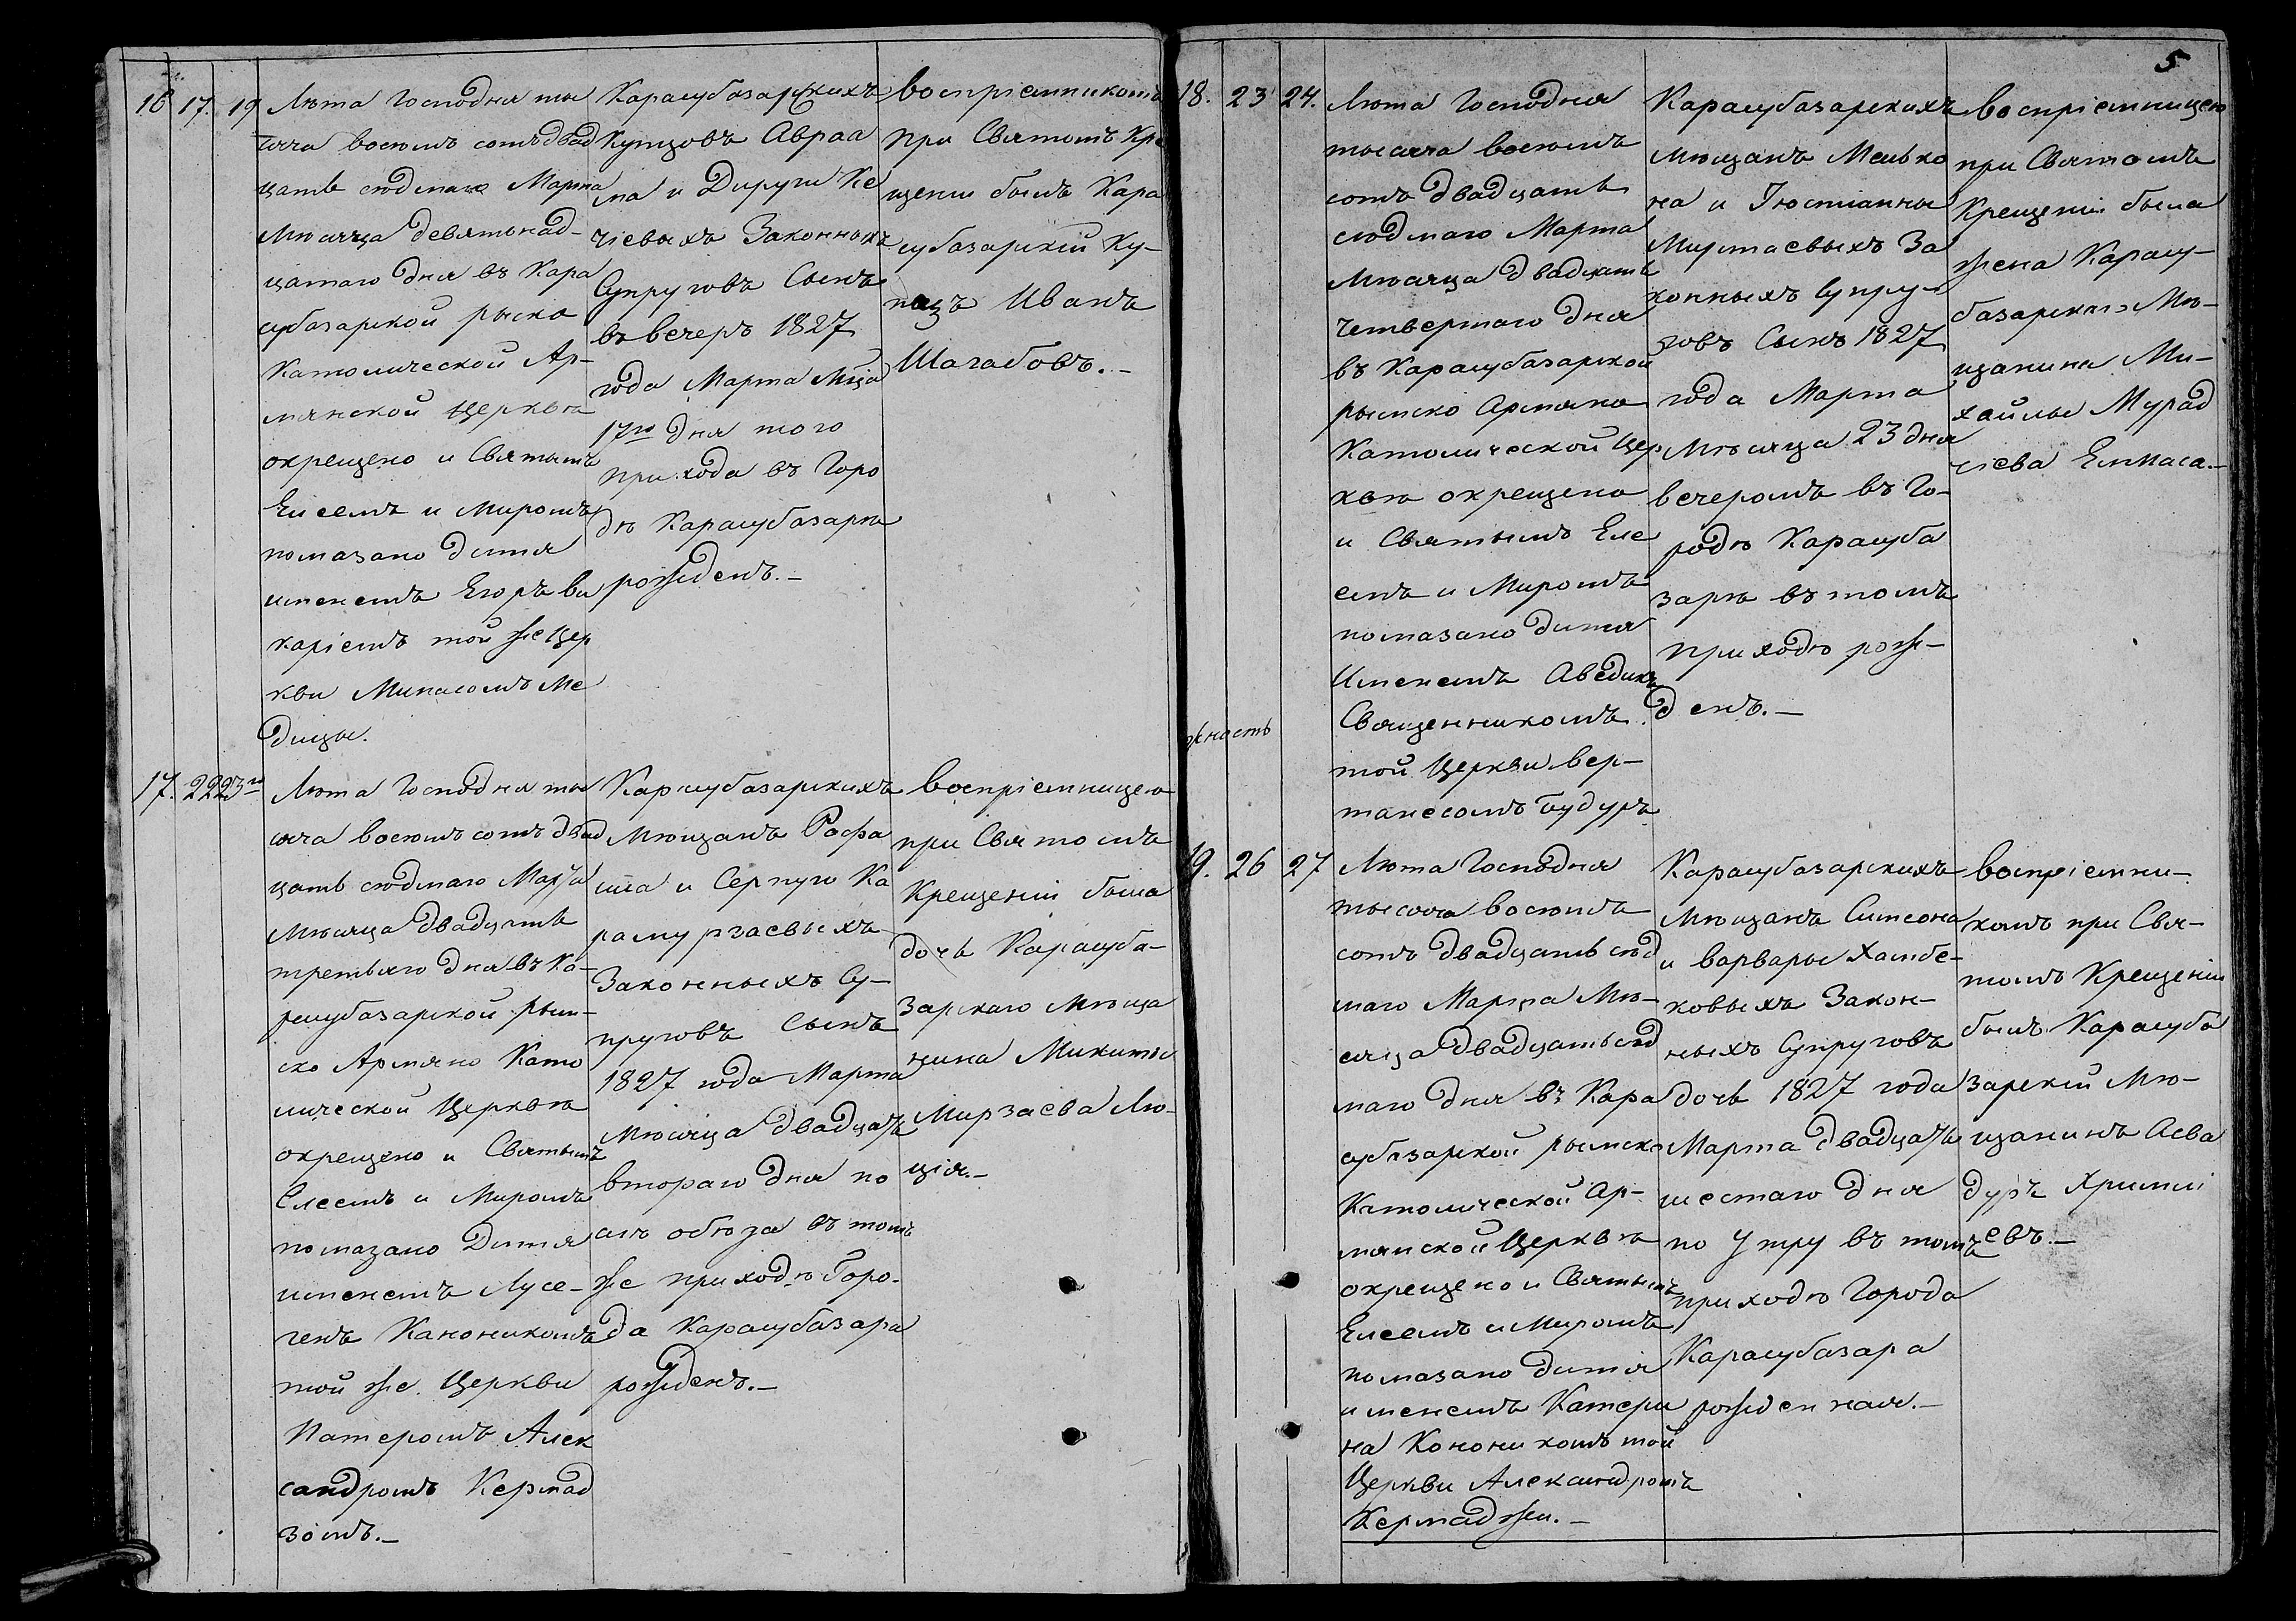 16 17. 19
Лѣта Господня ты
сяча восемь сотъ двад
цать седмаго Марта
Мѣсяца девятьнад-
цатаго дня въ Кара
субазарской рыско
Католической Ар-
мянской Церквѣ
окрещено и Святымъ
Елеемъ и Миромъ
помазано дитя
именемъ Егоръ ви
каріемъ той же Цер
кви Минасомъ Ме
дицы.
Карасубазарскихъ
Купцовъ Авраа
ма и Дируги Ке
чіевыхъ Законныхъ
Супруговъ Сынъ
въ вечеръ 1827
года Марта Мца
17го дня того
прихода въ Горо
дѣ Карасубазарѣ
рожденъ.-
воспріемникомъ
при Святомъ Кре
щеніи былъ Кара
субазарскій Ку-
пецъ Иванъ
Шагабовъ.-
17. 22 23го
Лѣта Господня ты
сяча восемь сотъ двад
цать седмаго Марта
Мѣсяца двадцать
третьяго дня въ Ка-
расубазарской рым-
ско Армяно Като
лической Церквѣ
окрещено и Святымъ
Елеемъ и Миромъ
помазано Дитя
именемъ Лусе-
генъ Каноникомъ
той же Церкви
Патеромъ Алек
сандромъ Кермад
зомъ.-
Карасубазарскихъ
Мѣщанъ Рафа
ила и Серпуги Ка
рамурзаевыхъ
Законныхъ Су-
пруговъ Сынъ
1827 года Марта
Мѣсяца двадцать
втораго дня по
слѣ обѣда въ томъ
же приходѣ Горо-
да Карасубазара
рожденъ.-
воспріемницею
при Святомъ
Крещеніи была
дочь Карасуба-
зарскаго Мѣща
нина Микиты
Мирзаева Лю-
ція.-
5
18. 23 24.
Лѣта Господня
тысяча восемь
сотъ двадцать
седмаго Марта
Мѣсяца двадцать
четвертаго дня
въ Карасубазарской
рымско Армяно
Католической Цер
квѣ окрещено
и Святымъ Еле
емъ и Миромъ
помазано дитя
Именемъ Аведикъ
Священникомъ
той Церкви Вер-
танесомъ Будуръ
Карасубазарскихъ
Мѣщанъ Мелько
на и Іюстіанны
Миртаевыхъ За
конныхъ Супру-
говъ Сынъ 1827
года Марта
Мѣсяца 23 дня
вечеромъ въ Го-
родѣ Карасуба
зарѣ въ томъ
приходѣ рож-
денъ.-
воспріемницею
при Святомъ
Крещеніи была
жена Карасу-
базарскаго Мѣ-
щанина Ми-
хайлы Мурад
чіева Елмаса.-
жность
19. 26 27
Лѣта Господня
тысяча восемь
сотъ двадцать сед
маго Марта Мѣ-
сяца двадцать сед
маго дня въ Кара
субазарской рымско
Католической Ар-
мянской Церквѣ
окрещено и Святымъ
Елеемъ и Миромъ
помазано дитя
именемъ Катери
на Кононикомъ той
Церкви Александромъ
Кермаджи.-
Карасубазарскихъ
Мѣщанъ Симеона
и Варвары Хамбе-
ковыхъ Закон-
ныхъ Супруговъ
дочь 1827 года
Марта двадцать
шестаго дня
по утру въ томъ
приходѣ Города
Карасубазара
рожденная.-
воспріемни-
комъ при Свя-
томъ Крещеніи
былъ Карасуба
зарскій Мѣ-
щанинъ Асва
дуръ Хримли
евъ.-